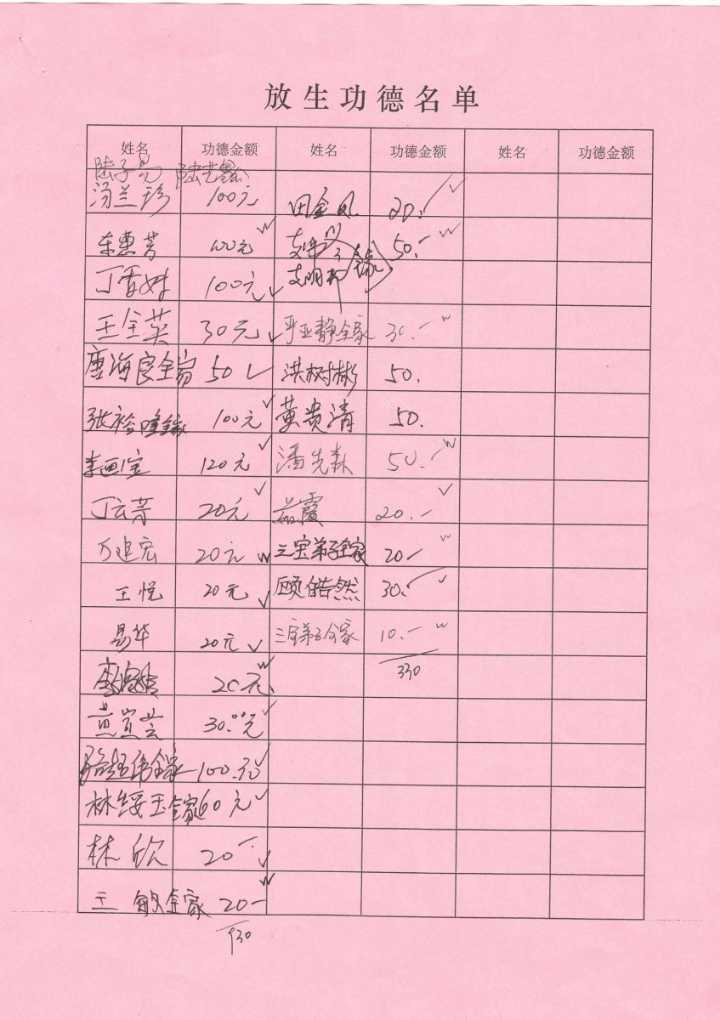 放生功德名单
姓名 功德金额 姓名 功德金额 姓名 功德金额
陆子易
汤兰珍 100元 田金凤 20.-
东惠芳 100元 50.-
丁香妹 100元 支明
王全英 30元 严亚静全家 30.-
唐海良全家 50 洪树彬 50.
张裕隆全家 100元 黄贵清 50.
李画宝 120元 潘先森 50.-
丁云芳 20元 益霞 20.-
万建宏 20元 三宝弟子全家 20-
王悦 20元 顾皓然 30.
易华 20元 三宝弟子全家 10.-
20元 330
黄岚芸 30.00元
骆超伟全家 100.元
林绥玉全家 60元
林欣 20-
王 全家 20-
930